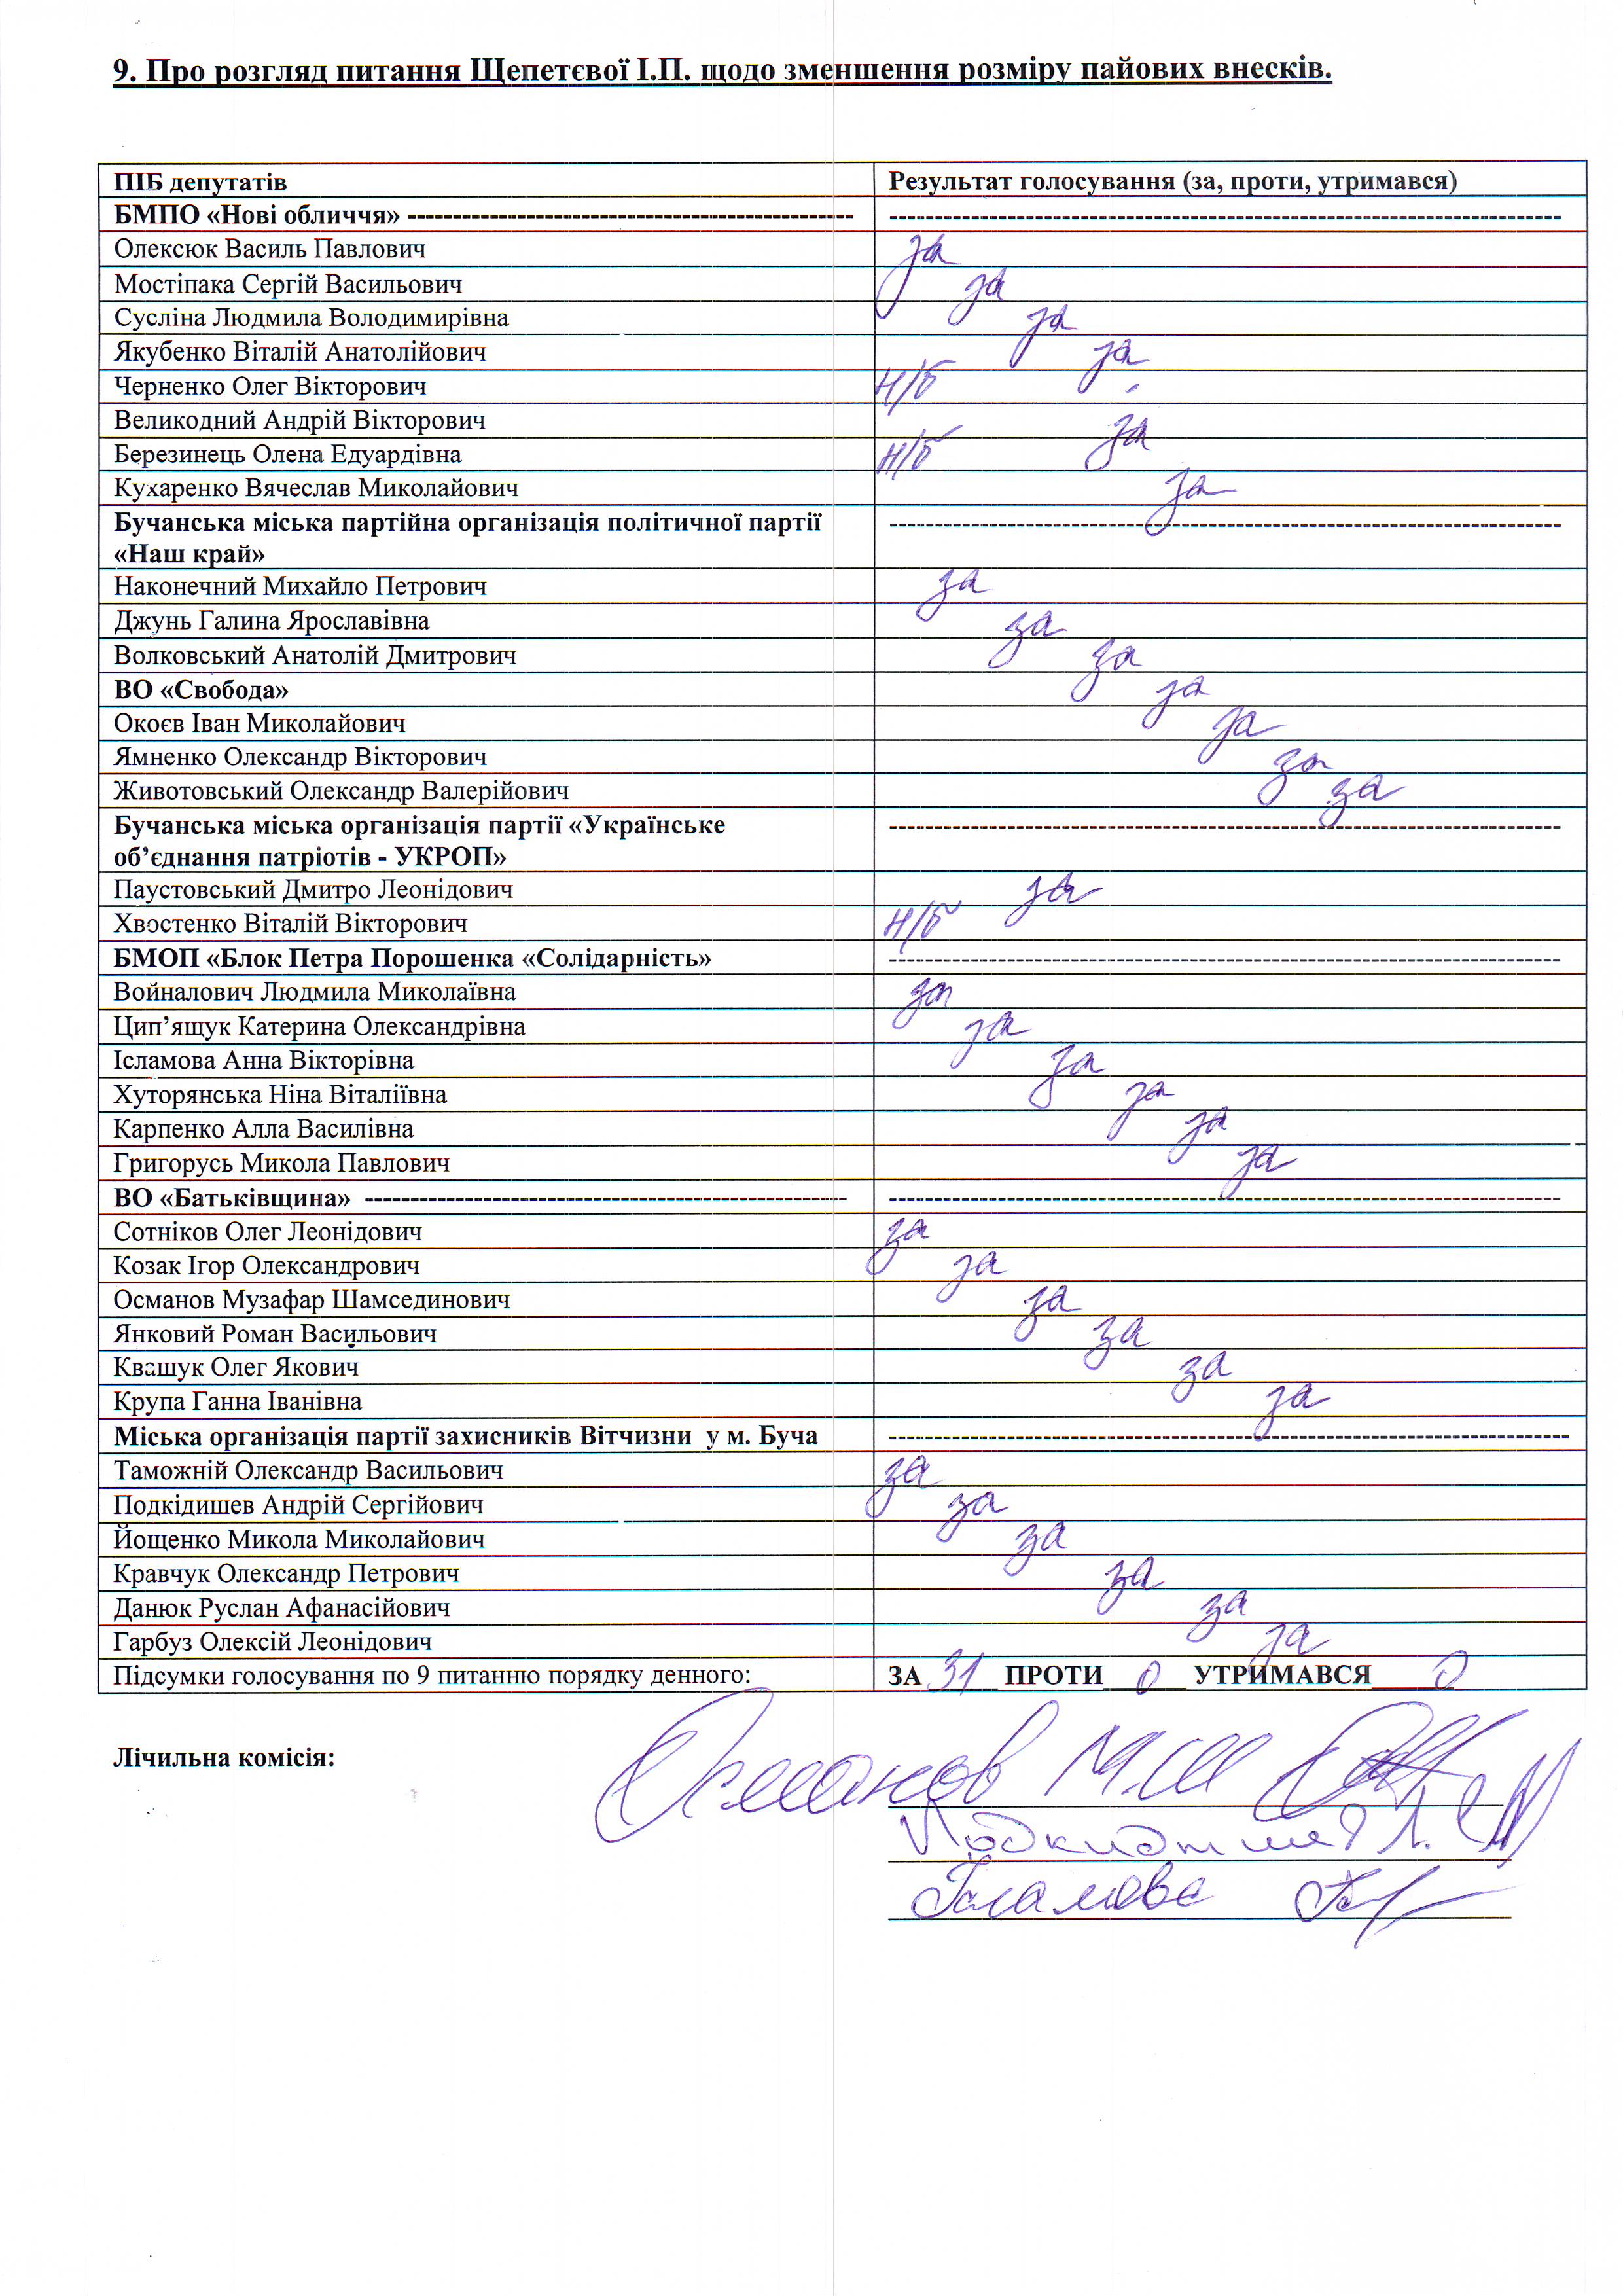 9. Про розгляд питання Щепетєвої І.П. щодо зменшення розміру пайових внесків.
ПІБ депутатів Результат голосування (за, проти, утримався)
БМПО «Нові обличчя» ------------------------------------------------- --------------------------------------------------------------------------
Олексюк Василь Павлович за
Мостіпака Сергій Васильович за
Сусліна Людмила Володимирівна за
Якубенко Віталій Анатолійович за
Черненко Олег Вікторович н/б
Великодний Андрій Вікторович за
Березинець Олена Едуардівна н/б
Кухаренко Вячеслав Миколайович за
Бучанська міська партійна організація політичної партії --------------------------------------------------------------------------
«Наш край»
Наконечний Михайло Петрович за
Джунь Галина Ярославівна за
Волковський Анатолій Дмитрович за
ВО «Свобода» за
Окоєв Іван Миколайович за
Ямненко Олександр Вікторович за
Животовський Олександр Валерійович за
Бучанська міська організація партії «Українське --------------------------------------------------------------------------
об’єднання патріотів - УКРОП»
Паустовський Дмитро Леонідович за
Хвостенко Віталій Вікторович н/б
БМОП «Блок Петра Порошенка «Солідарність» --------------------------------------------------------------------------
Войналович Людмила Миколаївна за
Цип’ящук Катерина Олександрівна за
Ісламова Анна Вікторівна за
Хуторянська Ніна Віталіївна за
Карпенко Алла Василівна за
Григорусь Микола Павлович за
ВО «Батьківщина» ----------------------------------------------------- --------------------------------------------------------------------------
Сотніков Олег Леонідович за
Козак Ігор Олександрович за
Османов Музафар Шамсединович за
Янковий Роман Васильович за
Квашук Олег Якович за
Крупа Ганна Іванівна за
Міська організація партії захисників Вітчизни у м. Буча ---------------------------------------------------------------------------
Таможній Олександр Васильович за
Подкідишев Андрій Сергійович за
Йощенко Микола Миколайович за
Кравчук Олександр Петрович за
Данюк Руслан Афанасійович за
Гарбуз Олексій Леонідович за
Підсумки голосування по 9 питанню порядку денного: ЗА 31 ПРОТИ 0 УТРИМАВСЯ 0
Лічильна комісія: Османов М.Ш
Ісламова